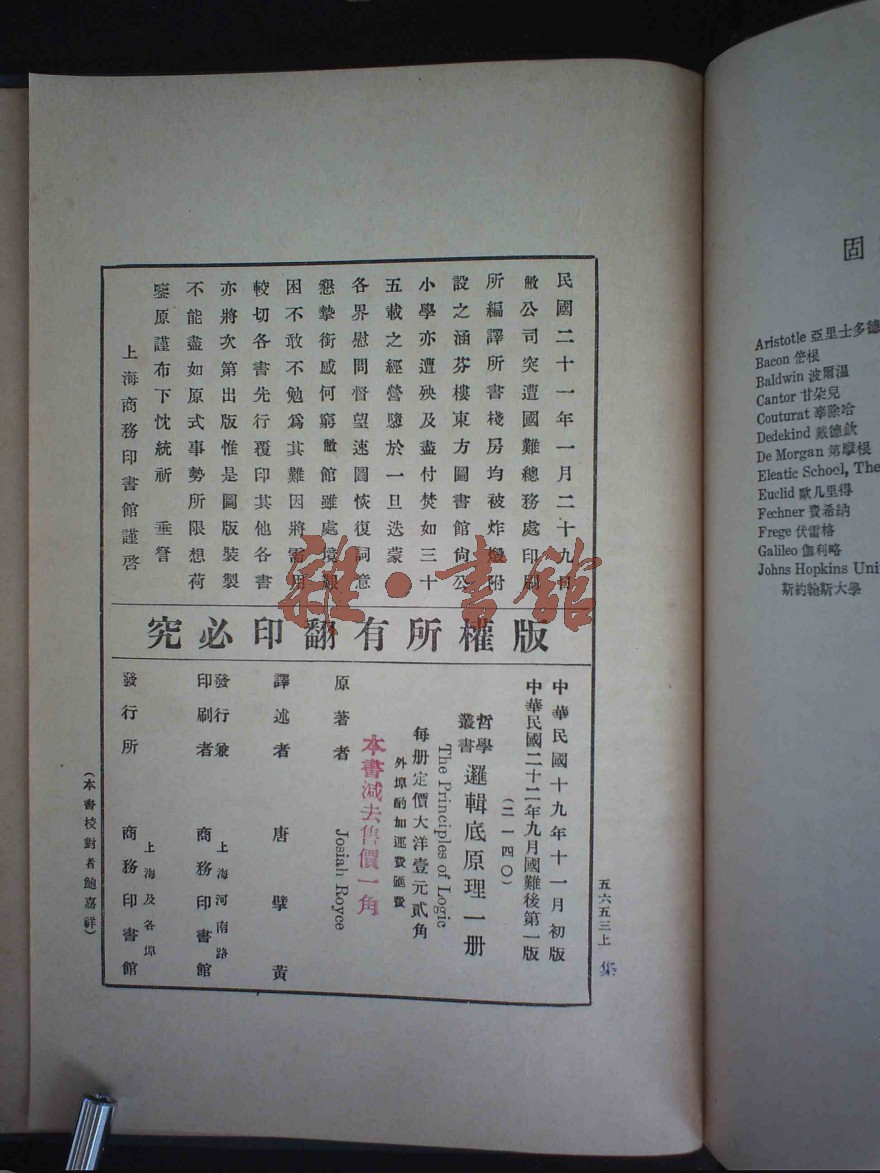 民國二十一年一月二十九日
敝公司突遭國難總務處印刷
所編譯所書棧房均被炸燬附
設之涵芬樓東方圖書館尙公
小學亦遭殃及盡付焚如三十
五載之經營隳於一旦迭蒙
各界慰問督望速圖恢復詞意
懇摯銜感何窮敝館雖處境艱
困不敢不勉爲其難因將需用
較切各書先行覆印其他各書
亦將次第出版惟是圖版裝製
不能盡如原式事勢所限想荷
鑒原謹布下忱統祈 垂詧
上海商務印書館謹啓
版權所有翻印必究
五六五三上
集
中華民國十九年十一月初版
中華民國二十二年九月國難後第一版
(二一四〇)
哲學叢書 邏輯底原理 一册
The Principles of Logic
每册定價大洋壹元貳角
外埠酌加運費匯費
本書減去售價一角
原著者 Josiah Royce
譯述者 唐擘黃
發行兼印刷者 上海河南路 商務印書館
發行所 上海及各埠 商務印書館
(本書校對者鮑嘉祥)
雜·書館
固
Aristotle 亞里士多德
Bacon 倍根
Baldwin 波爾溫
Cantor 甘朵兒
Couturat 辜除哈
Dedekind 戴德欽
De Morgan 第摩根
Eleatic School, The
Euclid 歐几里得
Fechner 費希納
Frege 伏雷格
Galileo 伽利略
Johns Hopkins Uni
斯約翰斯大學